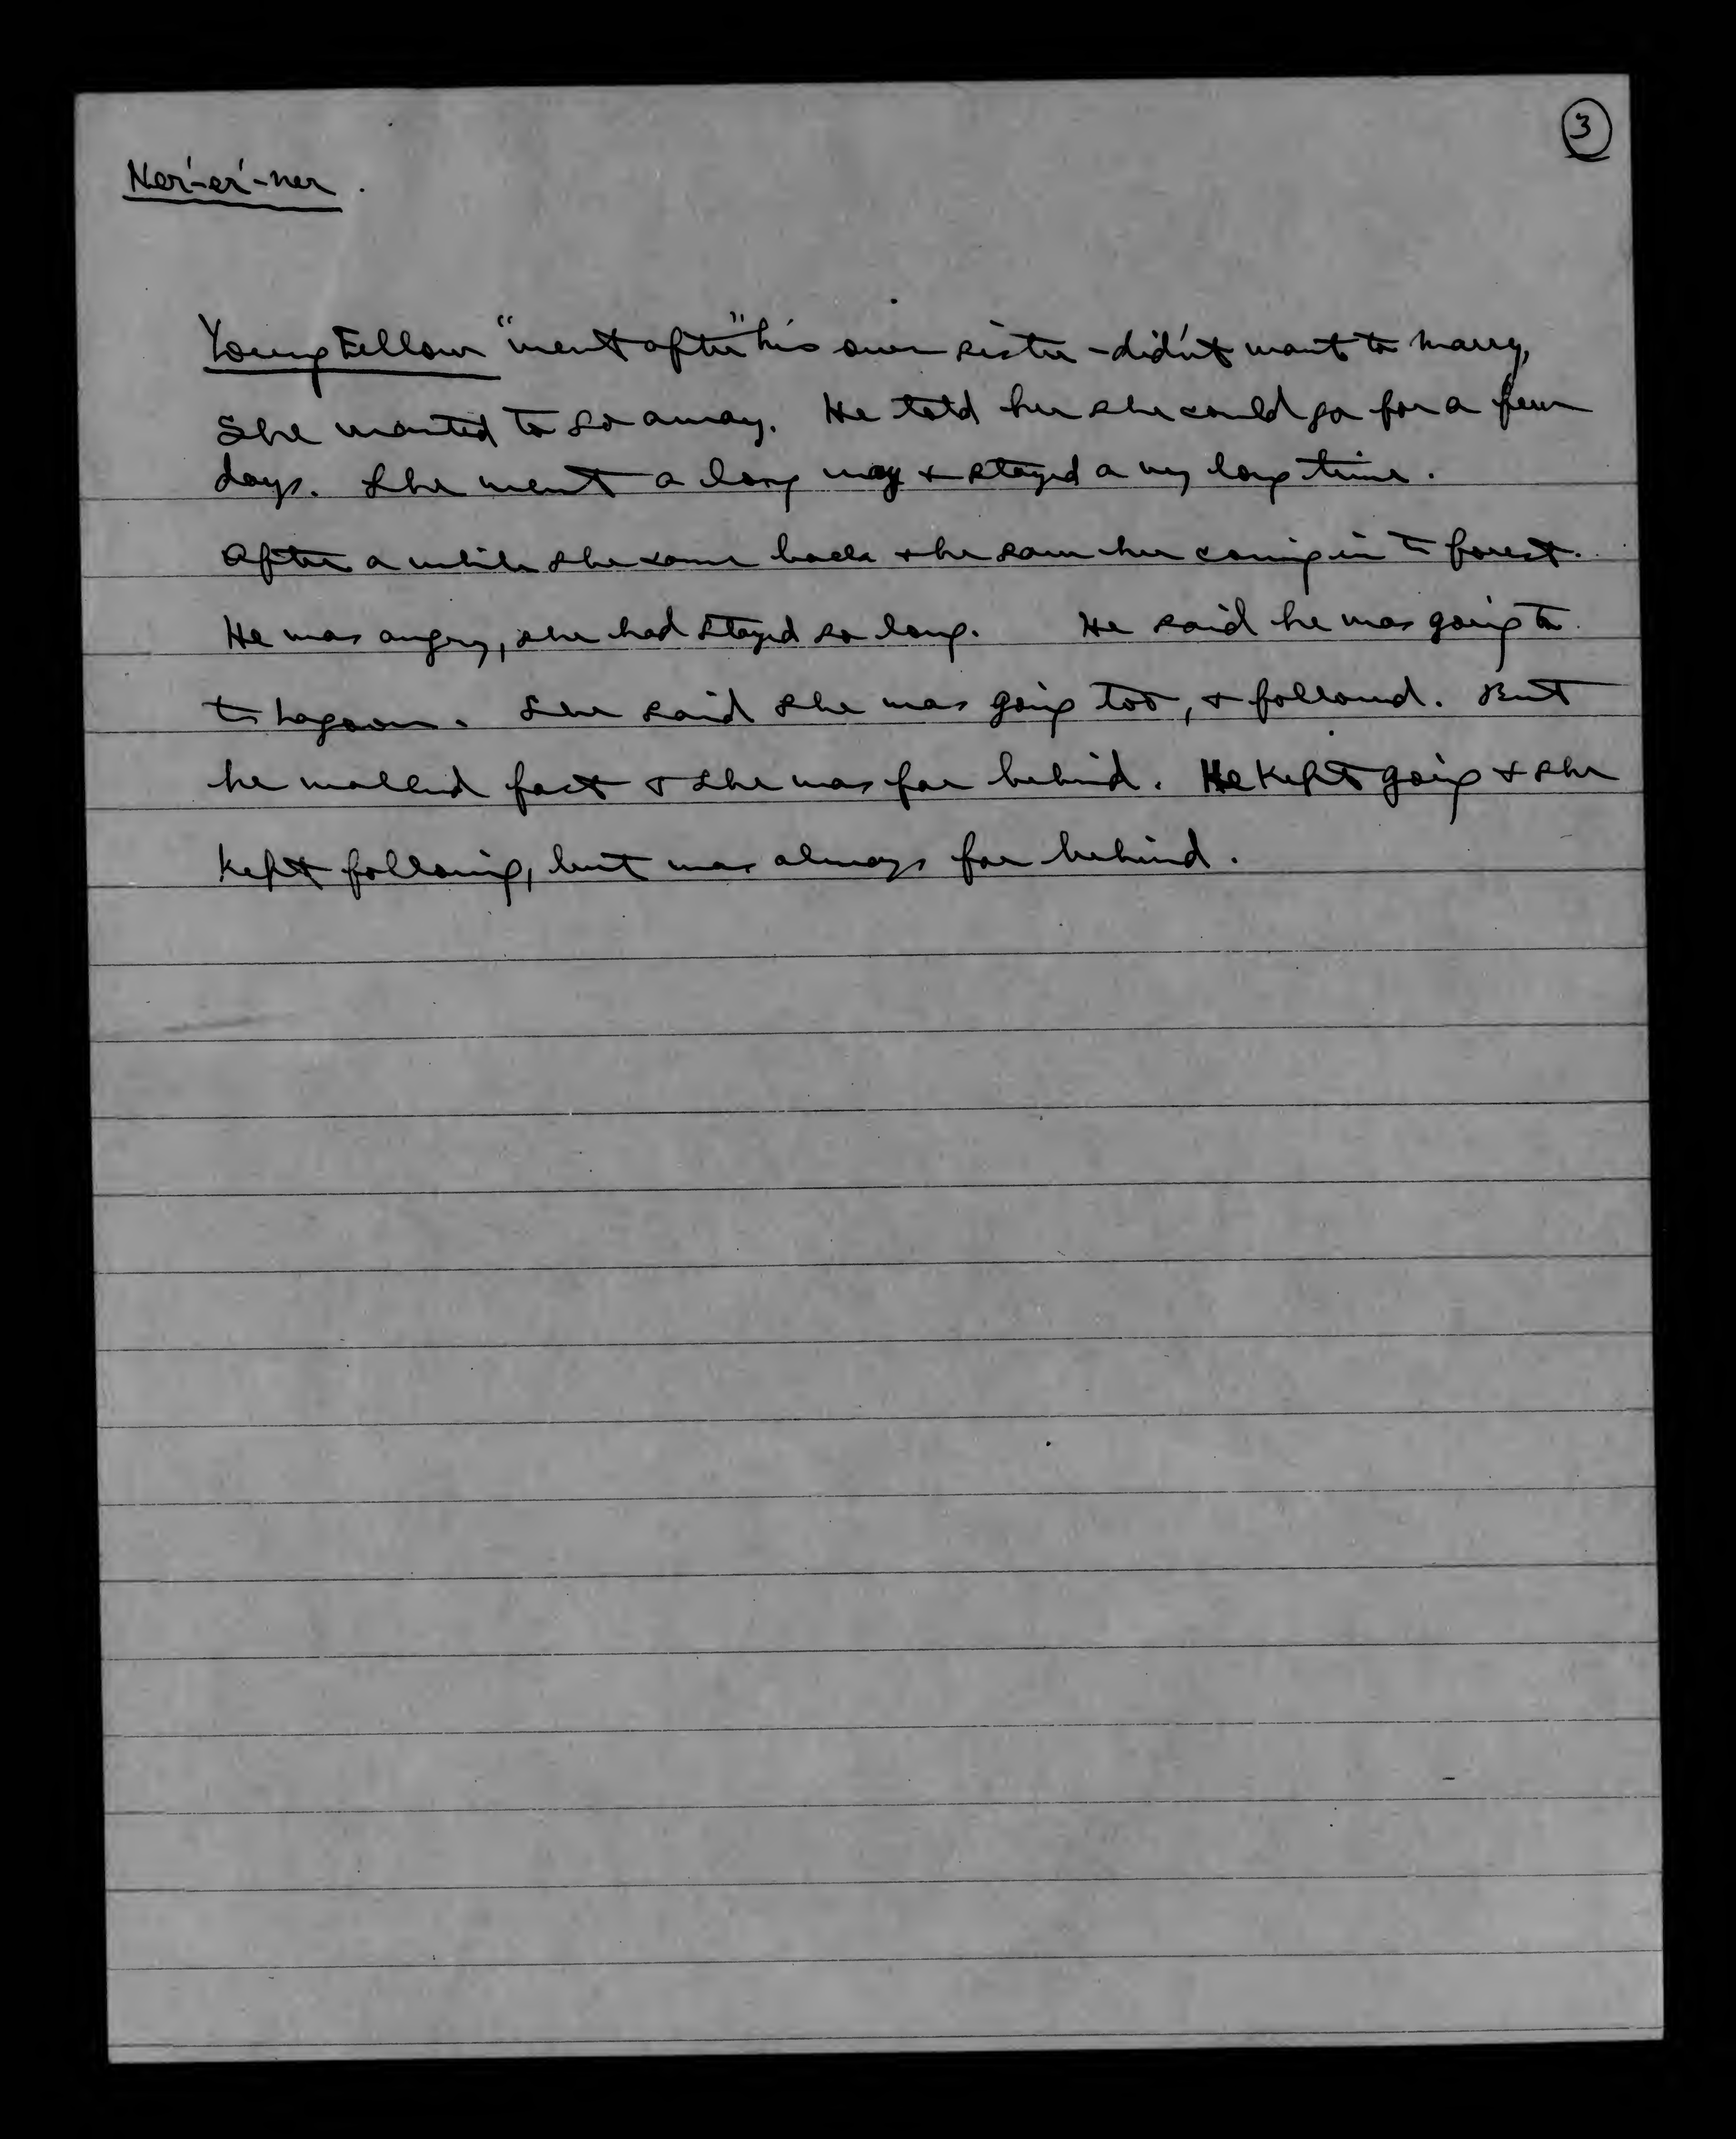 3
Ner'-er'-ner.
Young Fellow "went after" his own sister - didn't want to marry,
She wanted to go away. He told her she could go for a few
days. She went a long way & stayed a very long time.
After a while she came back & he saw her coming in to forest.
He was angry, she had stayed so long. He said he was going to
to Lagoon. She said she was going too, & followed. But
he walked fast & she was far behind. He kept going & she
kept following, but was always far behind.